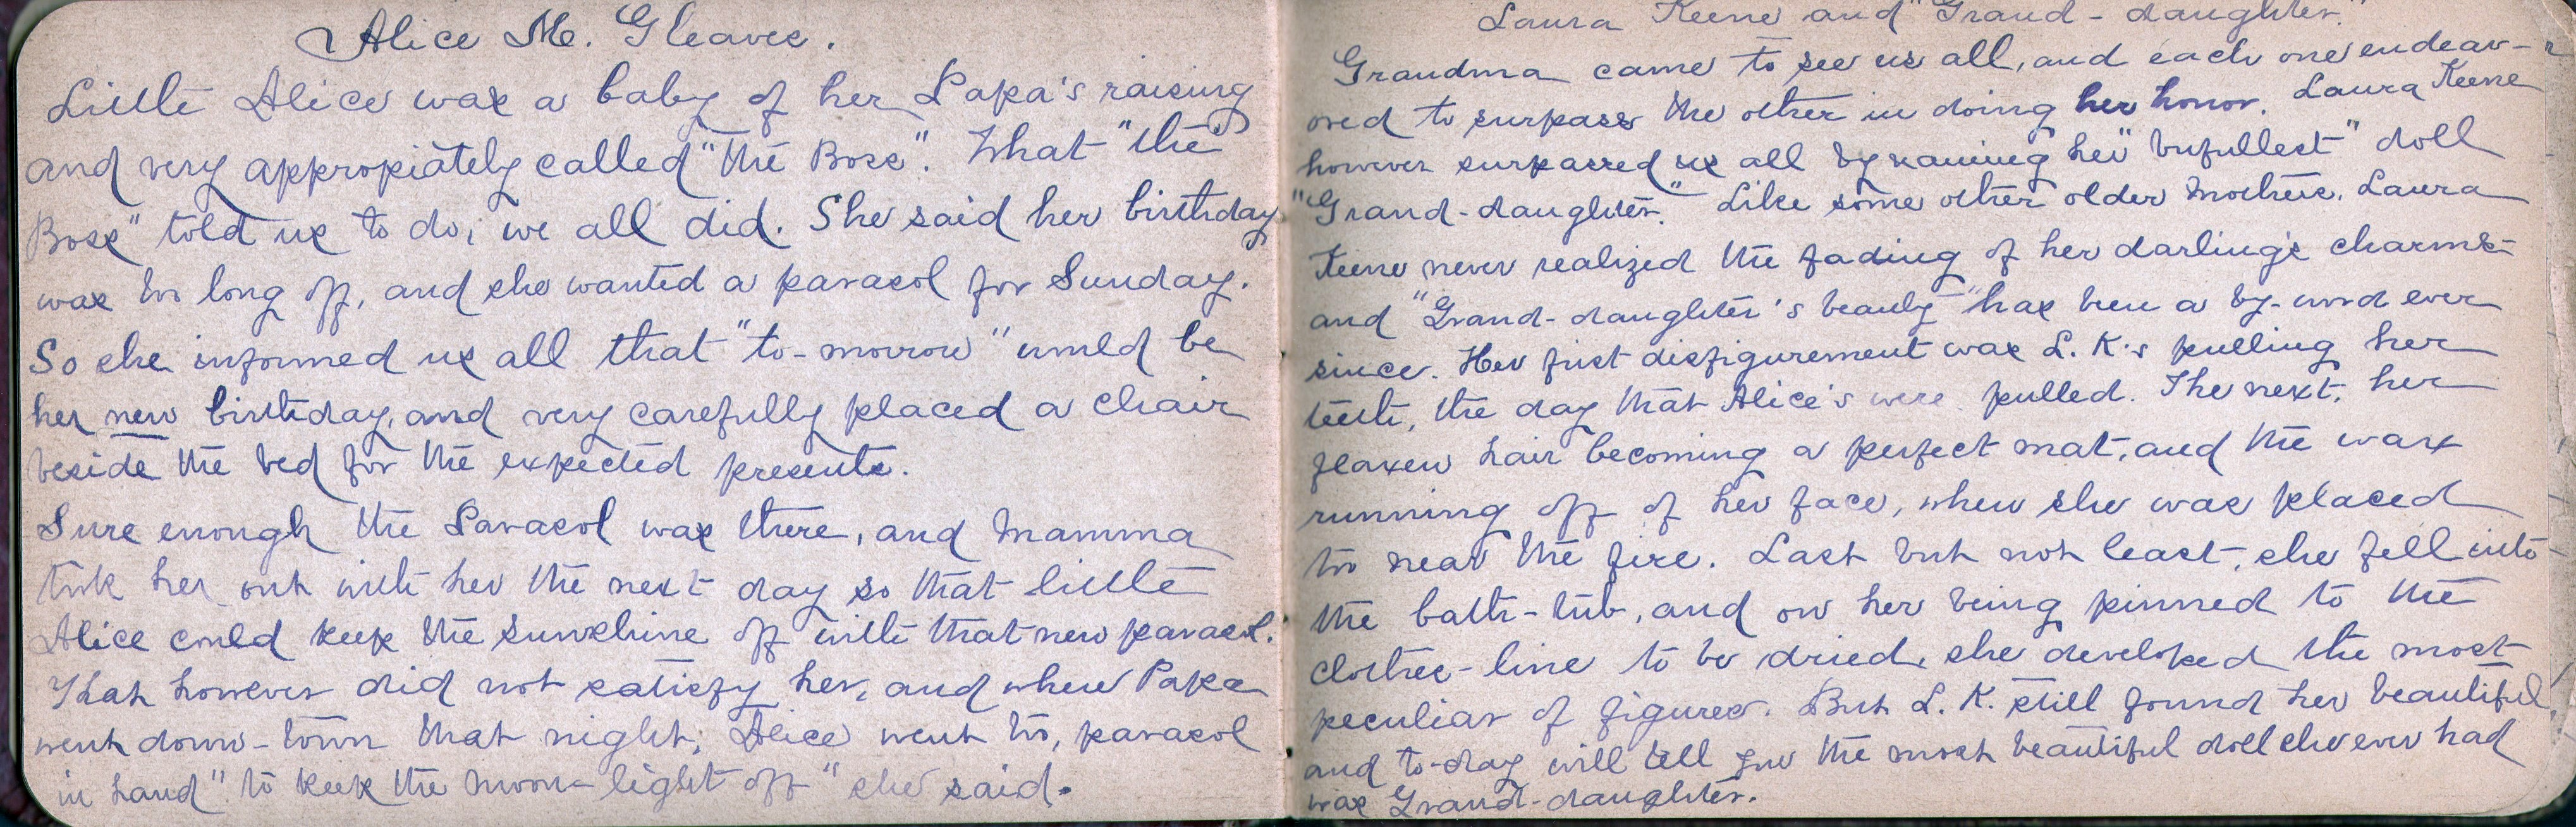 Alice M. Gleaves.
Little Alice was a baby of her Papa's raising
and very appropiately called "the Boss". What "the
Boss" told us to do, we all did. She said her birthday
was too long off, and she wanted a parasol for Sunday.
So she informed us all that "to-morrow" would be
her new birthday, and very carefully placed a chair
beside the bed for the expected presents.
Sure enough the Parasol was there, and Mamma
took her out with her the next day so that little
Alice could keep the sunshine off with that new parasol.
That however did not satisfy her, and when Papa
went down-town that night, Alice went too, parasol
in hand "to keep the moon-light off" she said.
Laura Keene and "Grand-daughter."
Grandma came to see us all, and each one endeav-
ored to surpass the other in doing her honor. Laura Keene
however surpassed us all by naming her "bufullest" doll
"Grand-daughter." Like some other older mothers, Laura
Keene never realized the fading of her darling's charms-
and "Grand-daughter's beauty" has been a by-word ever
since. Her first disfigurement was L. K.'s pulling her
teeth, the day that Alice's were pulled. The next, her
flaxen hair becoming a perfect mat, and the wax
running off of her face, when she was placed
too near the fire. Last but not least, she fell into
the bath-tub, and on her being pinned to the
clothes-line to be dried, she developed the most
peculiar of figures. But L. K. still found her beautiful,
and to-day will tell you the most beautiful doll she ever had
was Grand-daughter.